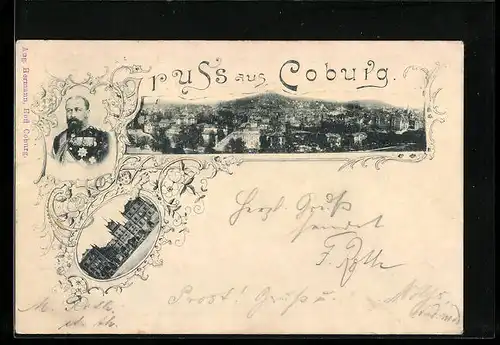 Gruss aus Coburg.
Aug. Hermann, Hof Coburg.
Herzl. Gruß
sendet
F. Roth
Prost! Gruß u.
M. Roth